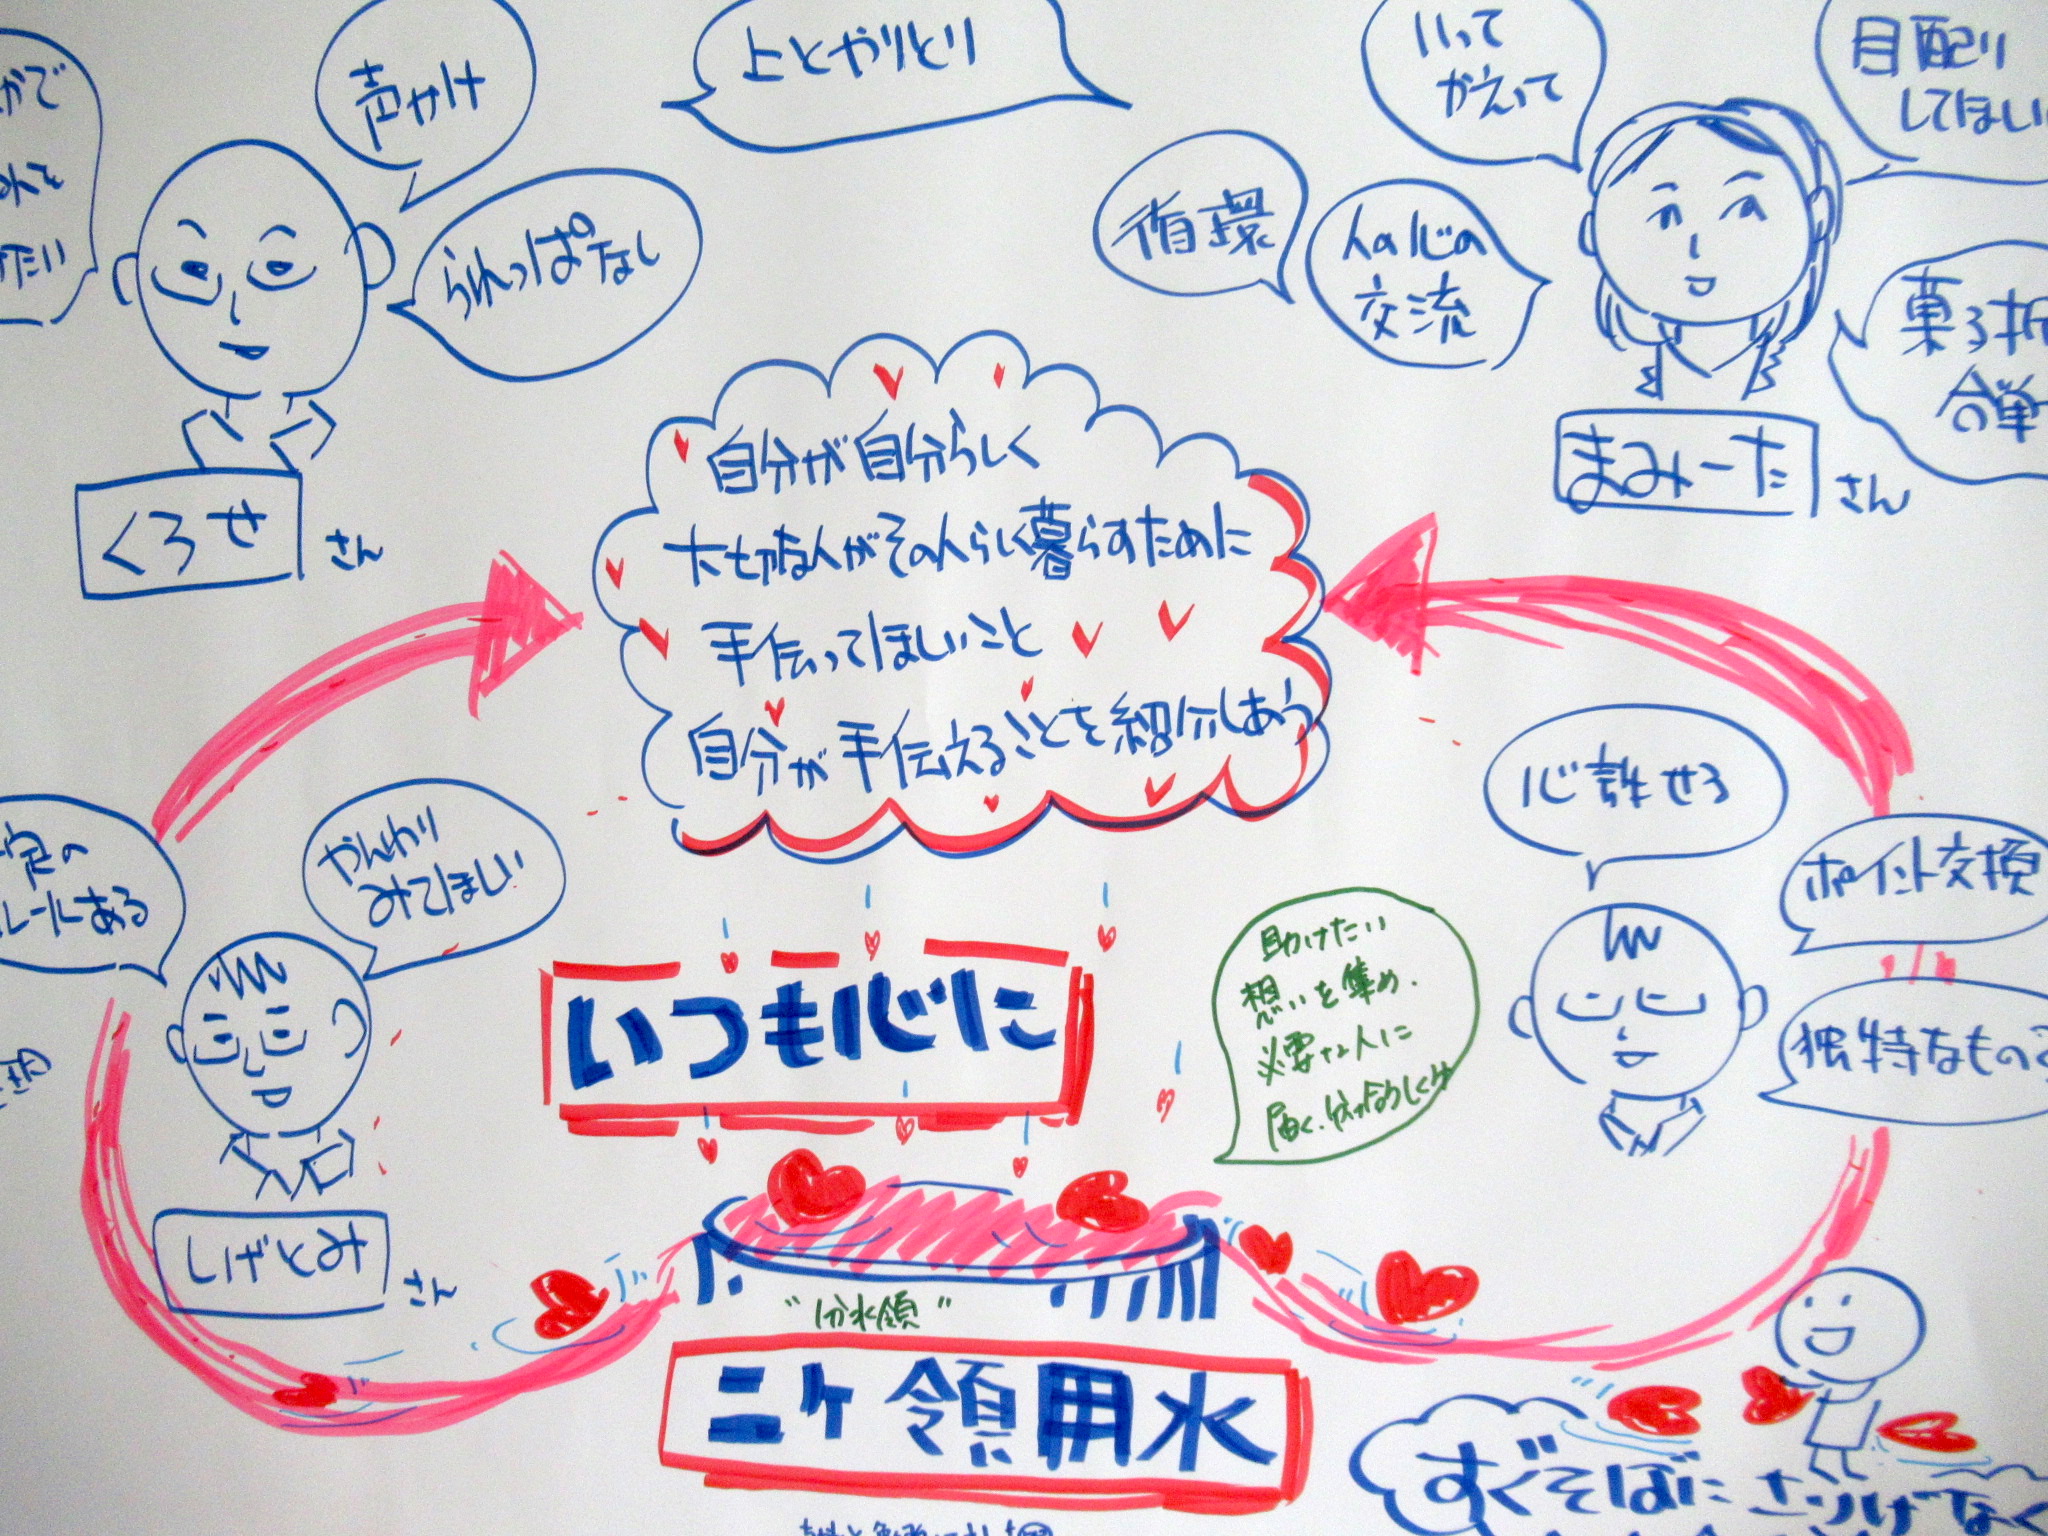 かで
声かけ
上とやりとり
いって
かえって
目配り
してほしい
られっぱなし
循環
人の心の
交流
菓子折
の単
くろせ
さん
まみーた
さん
自分が自分らしく
大切な人がその人らしく暮らすために
手伝ってほしいこと
自分が手伝えることを紹介しあう
定の
ルールある
やんわり
みてほしい
心許せる
ポイント交換
独特なもの
助けたい
想いを集め、
必要な人に
届く、
いつも心に
しげとみ
さん
"分水領"
二ケ領用水
すぐそばに さりげなく